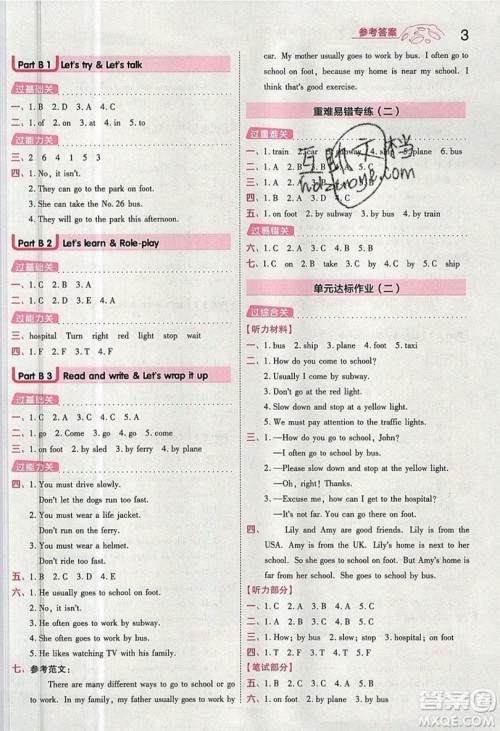 参考答案 3
Part B 1 Let's try & Let's talk
过基础关
一、1. B 2. D 3. A 4. C
二、1. of 2. on 3. at 4. to
过能力关
三、2 6 4 1 5 3
四、1. No, it isn't.
2. They can go to the park on foot.
3. They can take the No. 26 bus.
4. They will go to the park this afternoon.
Part B 2 Let's learn & Role-play
过基础关
一、1. D 2. C 3. A 4. B
二、1. C 2. A 3. A 4. C
过能力关
三、hospital Turn right red light stop wait
四、1. F 2. F 3. T 4. F
Part B 3 Read and write & Let's wrap it up
过基础关
一、1. C 2. B 3. C 4. A
二、1. go 2. Come 3. go 4. come
三、1. on foot 2. by sled 3. by ferry 4. by ship
过能力关
四、1. You must drive slowly.
Don't let the dogs run too fast.
2. You must wear a life jacket.
Don't run on the ferry.
3. You must wear a helmet.
Don't ride too fast.
五、1. C 2. B 3. A 4. C 5. B
六、1. He goes to school on foot.
2. No, it isn't.
3. She often goes to school on foot.
4. She often goes to work by bus.
5. He likes watching TV with his family.
七、参考范文:
There are many different ways to go to school or
work. In my family, my father usually goes to work by
car. My mother usually goes to work by bus. I often go to
school on foot, because my home is near my school. I think
that's good exercise.
重难易错专练（二）
过重难关
一、1. train 2. car 3. subway 4. ship 5. plane 6. bus
二、1. B 2. A
三、1. A 2. B
四、1. B 2. B
五、1. on foot 2. by subway 3. by bus 4. by train
过易错关
六、1. C 2. B 3. C 4. B
七、1. Don't 2. take 3. by 4. take
单元达标作业（二）
过综合关
【听力材料】
一、1. bus 2. ship 3. plane 4. foot 5. taxi
二、1. How do you come to school?
2. Usually I come by subway.
3. Don't go at the red light.
4. Slow down and stop at the yellow light.
5. We must pay attention to the traffic lights.
三、1. —How do you go to school, John?
—I often go to school on foot.
2. —How do I get to the hospital?
—You can go by subway.
3. —Slow down at the yellow light.
—OK.
4. —Excuse me, how can I get to the park?
—It's not far. You can go on foot.
四、Lily and Amy are good friends. Lily is from the
USA. Amy is from the UK. Lily's home is next to her
school. So Lily goes to school on foot. But Amy's home is
far from school. She goes to school by bus.
【听力部分】
一、1. C 2. A 3. B 4. A 5. C
二、1. How; by 2. stop 3. hospital; on foot
四、1. F 2. F 3. T 4. F
【笔试部分】
五、1. A 2. B 3. A 4. B 5. C
六、1. on foot 2. by bus 3. by plane 4. by subway